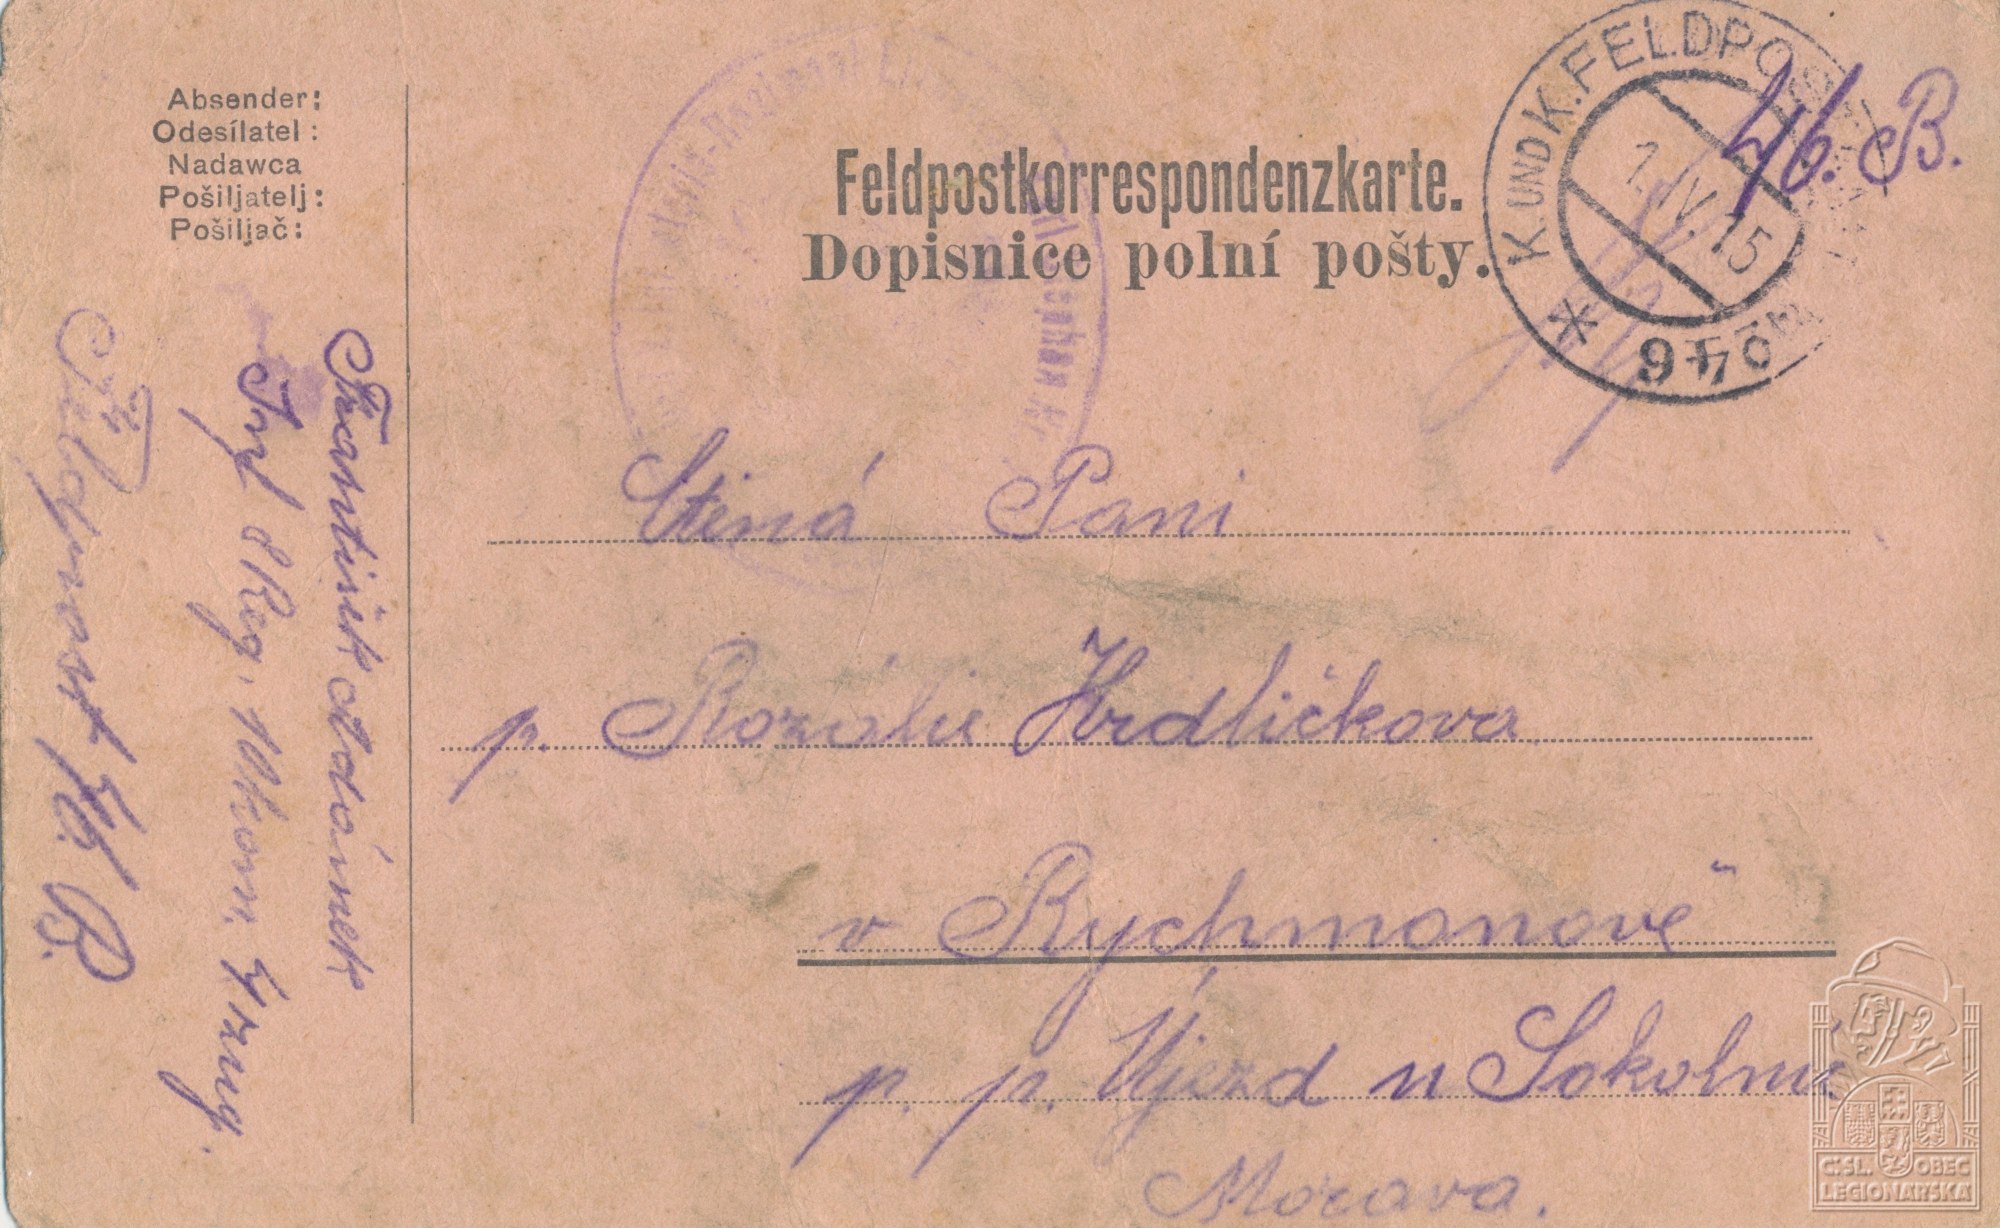 Absender:
Odesílatel:
Nadawca
Pošiljatelj:
Pošiljač:
Feldpostkorrespondenzkarte.
Dopisnice polní pošty.
K. UND K. FELDPOST
1. IV. 15
46. B.
František Adámek
Inf 8 Reg. 11 kom. 4 zug.
Feldpost 46. B.
Ctěná Pani
p. Rozálie Hrdličkova
v Rychmanově
p. p. Újezd u Sokolnic
Morava.
ČSL. OBEC
LEGIONÁŘSKÁ